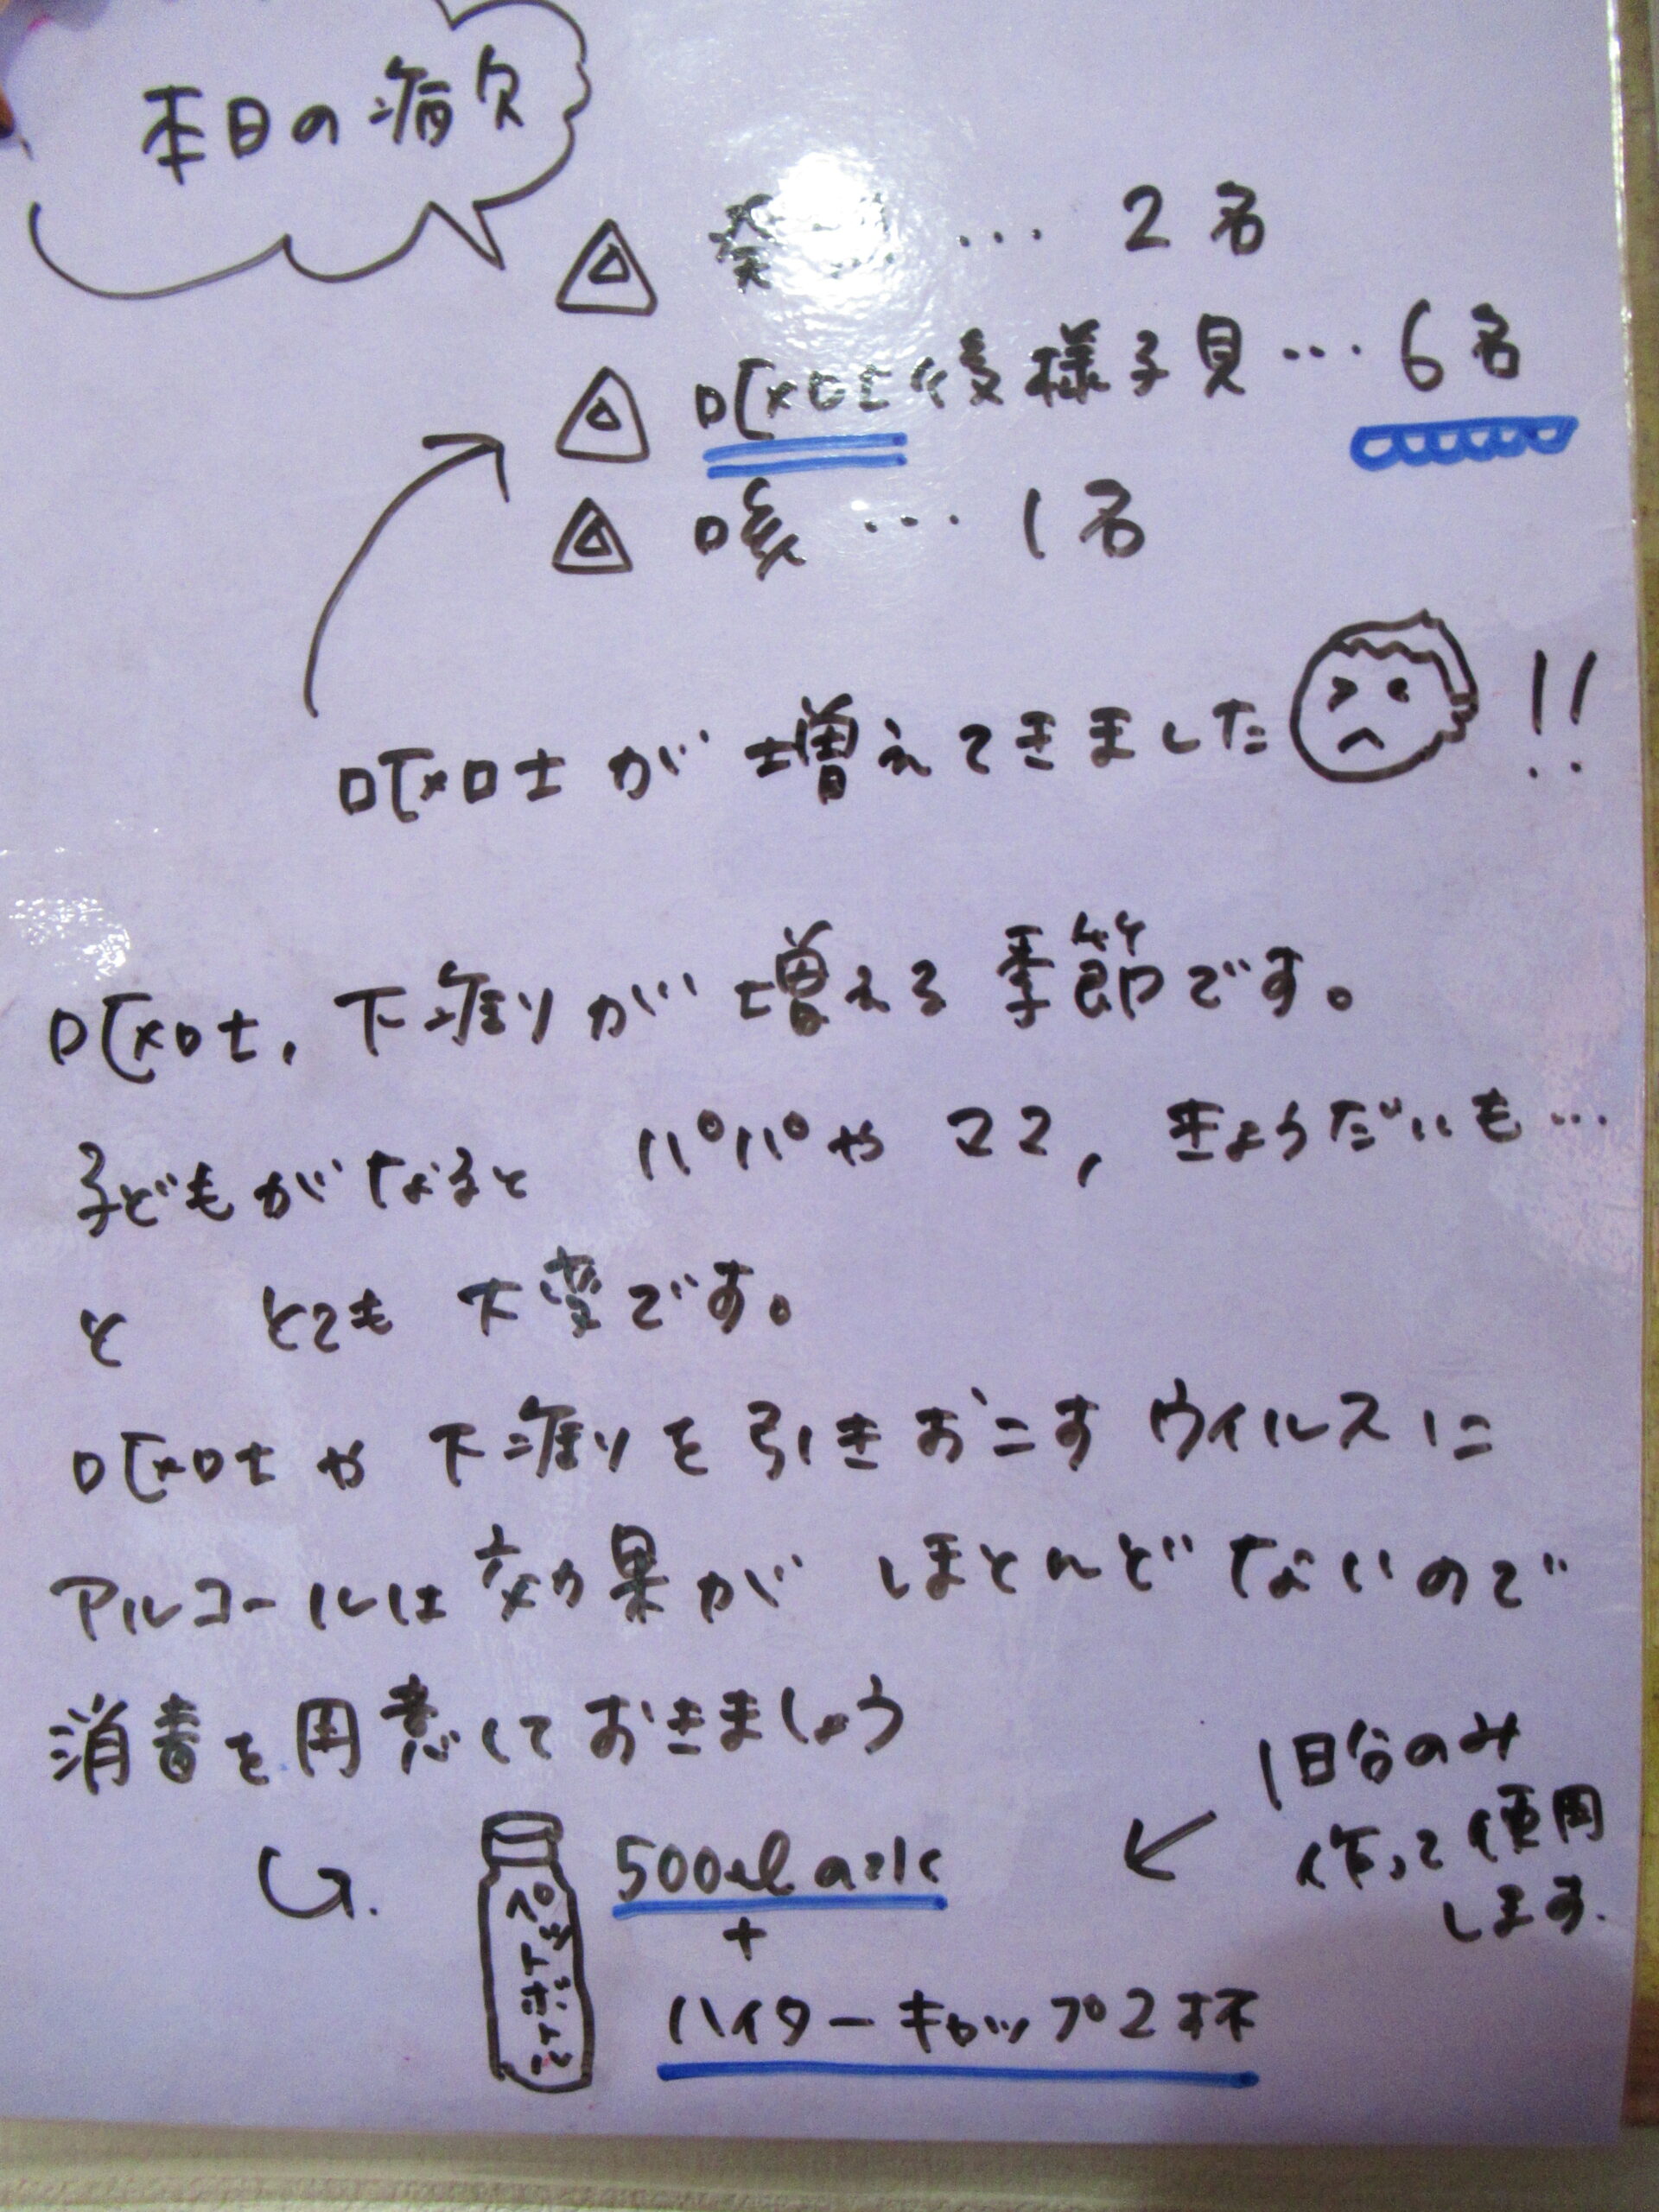 本日の病欠
発 … 2名
嘔吐後様子見 … 6名
咳 … 1名
嘔吐が増えてきました!!
嘔吐, 下痢が増える季節です。
子どもがなると パパやママ, きょうだいも…
と とても大変です。
嘔吐や下痢を引きおこすウイルスに
アルコールは効果がほとんどないので
消毒を用意しておきましょう
1日分のみ
作って使用
します.
ペットボトル
500ml
+
ハイターキャップ2杯